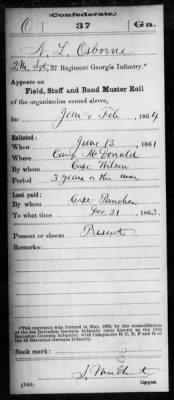 (Confederate.)
O 37 Ga.
N. L. Osborne
37 Regiment Georgia Infantry.*
Appears on
Field, Staff and Band Muster Roll
of the organization named above,
for Jan & Feb, 1864
Enlisted:
When June 13, 1861
Where Camp McDonald
By whom Capt Wilson
Period 3 years or the war
Last paid:
By whom Capt
To what time Dec 31, 1863.
Present or absent Present
Remarks:
*This regiment was formed in May, 1863, by the consolidation
of the 3d Battalion Georgia Infantry
Battalion Georgia Infantry) with Companies
Book mark:
Copyist.